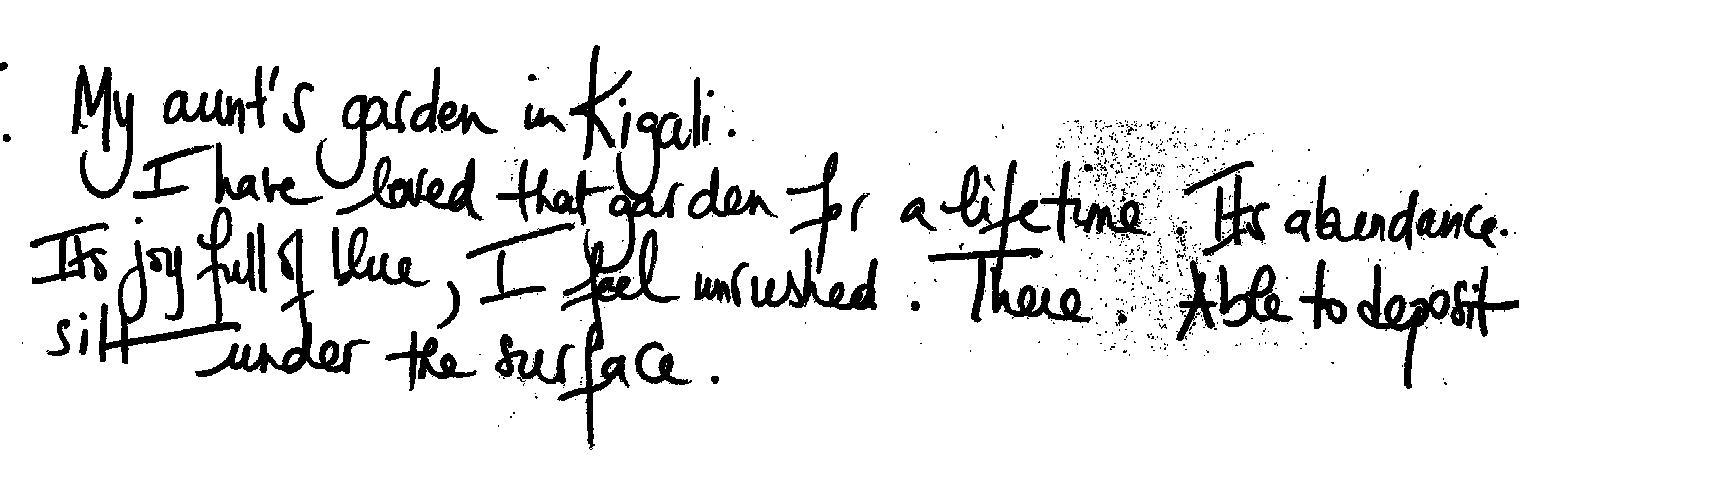 My aunt's garden in Kigali.
I have loved that garden for a lifetime. Its abundance.
Its joy full of blue, I feel unrushed. There. Able to deposit
silt under the surface.